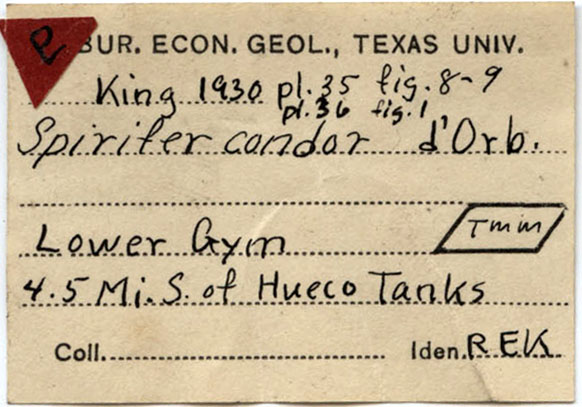 P
BUR. ECON. GEOL., TEXAS UNIV.
King 1930 pl. 35 fig. 8-9
pl. 36 fig. 1
Spirifer condor d'Orb.
Lower Gym
TMM
4.5 Mi. S. of Hueco Tanks
Coll. Iden. REK